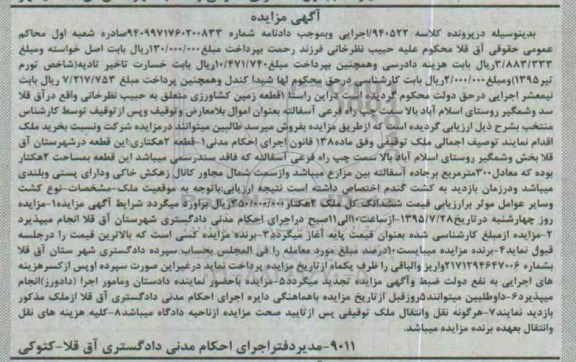 آگهی مزایده
بدینوسیله درپرونده کلاسه ۹۴۰۵۲۲/اجرایی وبموجب دادنامه شماره ۹۴۰۹۹۷۱۷۶۰۲۰۰۸۳۳صادره شعبه اول محاکم
عمومی حقوقی آق قلا محکوم علیه حبیب نظرخانی فرزند رحمت بپرداخت مبلغ۱۳۰/۰۰۰/۰۰۰ریال بابت اصل خواسته ومبلغ
۳/۸۸۳/۳۳۳ریال بابت هزینه دادرسی وهمچنین بپرداخت مبلغ۱۰/۴۷۱/۷۴۰ریال بابت خسارت تاخیر تادیه(شاخص تورم
تیر۱۳۹۵)ومبلغ۲/۰۰۰/۰۰۰ریال بابت کارشناسی درحق محکوم لها شیدا کندل وهمچنین پرداخت مبلغ ۷/۲۱۷/۷۵۳ ریال بابت
نیمعشر اجرایی درحق دولت محکوم گردیده است دراین راستا ۱قطعه زمین کشاورزی متعلق به حبیب نظرخانی واقع درآق قلا
سد وشمگیر روستای اسلام آباد بالا سمت چپ راه فرعی آسفالته بعنوان اموال بلامعارض وتوقیف وپس ازتوقیف توسط کارشناس
منتخب بشرح ذیل ارزیابی گردیده است که ازطریق مزایده بفروش میرسد طالبین میتوانند درمزایده شرکت ونسبت بخرید ملک
اقدام نمایند توصیف اجمالی ملک توقیفی وفق ماده۱۳۸ قانون اجرای احکام مدنی۱-قطعه ۲هکتاری:این قطعه درشهرستان آق
قلا بخش وشمگیر روستای اسلام آباد بالا سمت چپ راه فرعی آسفالته که فاقد سندرسمی میباشد این قطعه بمساحت ۲هکتار
بوده که معادل۳۰۰مترمربع برجاده آسفالته بین مزارع میباشد وازسمت شمال مجاور کانال زهکش خاکی ودارای پستی وبلندی
میباشد ودرزمان بازدید به کشت گندم اختصاص داشته است نتیجه ارزیابی:باتوجه به موقعیت ملک-مشخصات-نوع کشت
وسایر عوامل موثر برارزیابی قیمت ششدانگ کل ملک ۲هکتار۲۵۰/۰۰۰/۰۰۰ریال برآورد میگردد شرایط آگهی مزایده۱-مزایده
روز چهارشنبه درتاریخ۱۳۹۵/۷/۲۸-ازساعت۱۰الی۱۱صبح دراجرای احکام مدنی دادگستری شهرستان آق قلا انجام میپذیرد
۲-مزایده ازمبلغ کارشناسی شده بعنوان قیمت پایه آغاز میگردد۳-برنده مزایده کسی است که بالاترین قیمت را درجلسه
قبول نماید۴-برنده مزایده میبایست۱۰درصد مبلغ مورد معامله را فی المجلس بحساب سپرده دادگستری شهر ستان آق قلا
بشماره ۲۱۷۱۲۹۴۶۴۷۰۰۶واریز والباقی را ظرف یکماه ازتاریخ مزایده پرداخت نماید درغیراین صورت سپرده اوپس ازکسرهزینه
های اجرایی به نفع دولت ضبط وآگهی مزایده تجدید میگردد۵-مزایده باحضور نماینده دادستان ومامور اجرا (دادورز)انجام
میپذیرد۶-داوطلبین میتوانند۵روزقبل ازتاریخ مزایده باهماهنگی دایره اجرای احکام مدنی دادگستری آق قلا ازملک مذکور
بازدید نمایند۷-هرگونه نقل وانتقال ملک توقیفی پس ازتایید صحت مزایده ازناحیه دادگاه میباشد۸-کلیه هزینه های نقل
وانتقال بعهده برنده مزایده میباشد.
۹۰۱۱-مدیردفتراجرای احکام مدنی دادگستری آق قلا-کتوکی